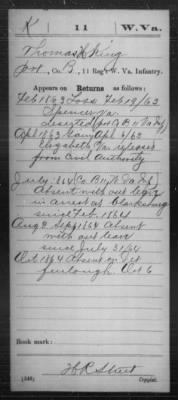 K 11 W.Va.
Thomas King
Pvt., Co. B, 11 Reg't W. Va. Infantry.
Appears on Returns as follows:
Feb 1863 Loss Feb 18/63
Spencer Va
deserted (Pvt Co B 11 Va Inf)
Apl 1863 Gain Apl 6/63
Elizabeth Va released
from Civil Authority
July 1864 (Co B 11 W. Va Inf)
Absent with out leave
in arrest at Clarksburg
since Feb. 1864
Aug & Sept 1864 Absent
with out leave
since July 31/64
Oct 1864 Absent on
furlough Oct 6
Book mark:
H R Street
(546) Copyist.